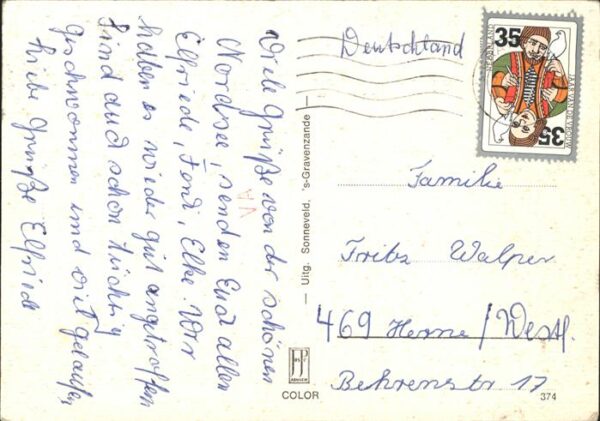 Viele Grüße von der schönen
Nordsee, senden Euch allen
Elfriede, Ferdi, Elke. Wir
haben es wieder gut angetroffen
Sind auch schon tüchtig
geschwommen und viel gelaufen
Liebe Grüße Elfriede
— Uitg. Sonneveld, 's-Gravenzande —
COLOR
374
Deutschland
35
35
Familie
Fritz Walper
469 Herne/Westf.
Behrenstr 17